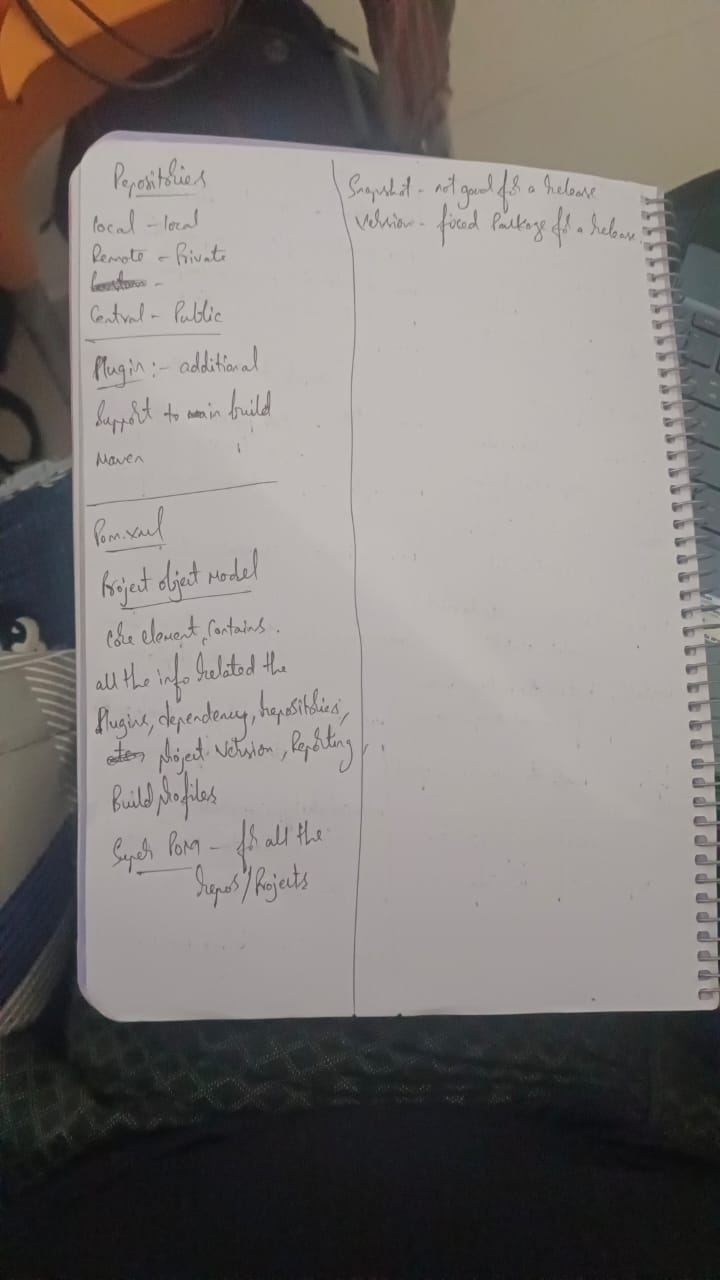 Repositories
local - local
Remote - Private
-
Central - Public
Plugin :- additional
Support to main build
Maven
Pom.xml
Project object Model
Core element, Contains.
all the info related the
Plugins, dependency, repositories,
project version, Reporting,
Build profiles
Super POM - for all the
repos/Projects
Snapshot - not good for a release
Version - fixed Package for a release.